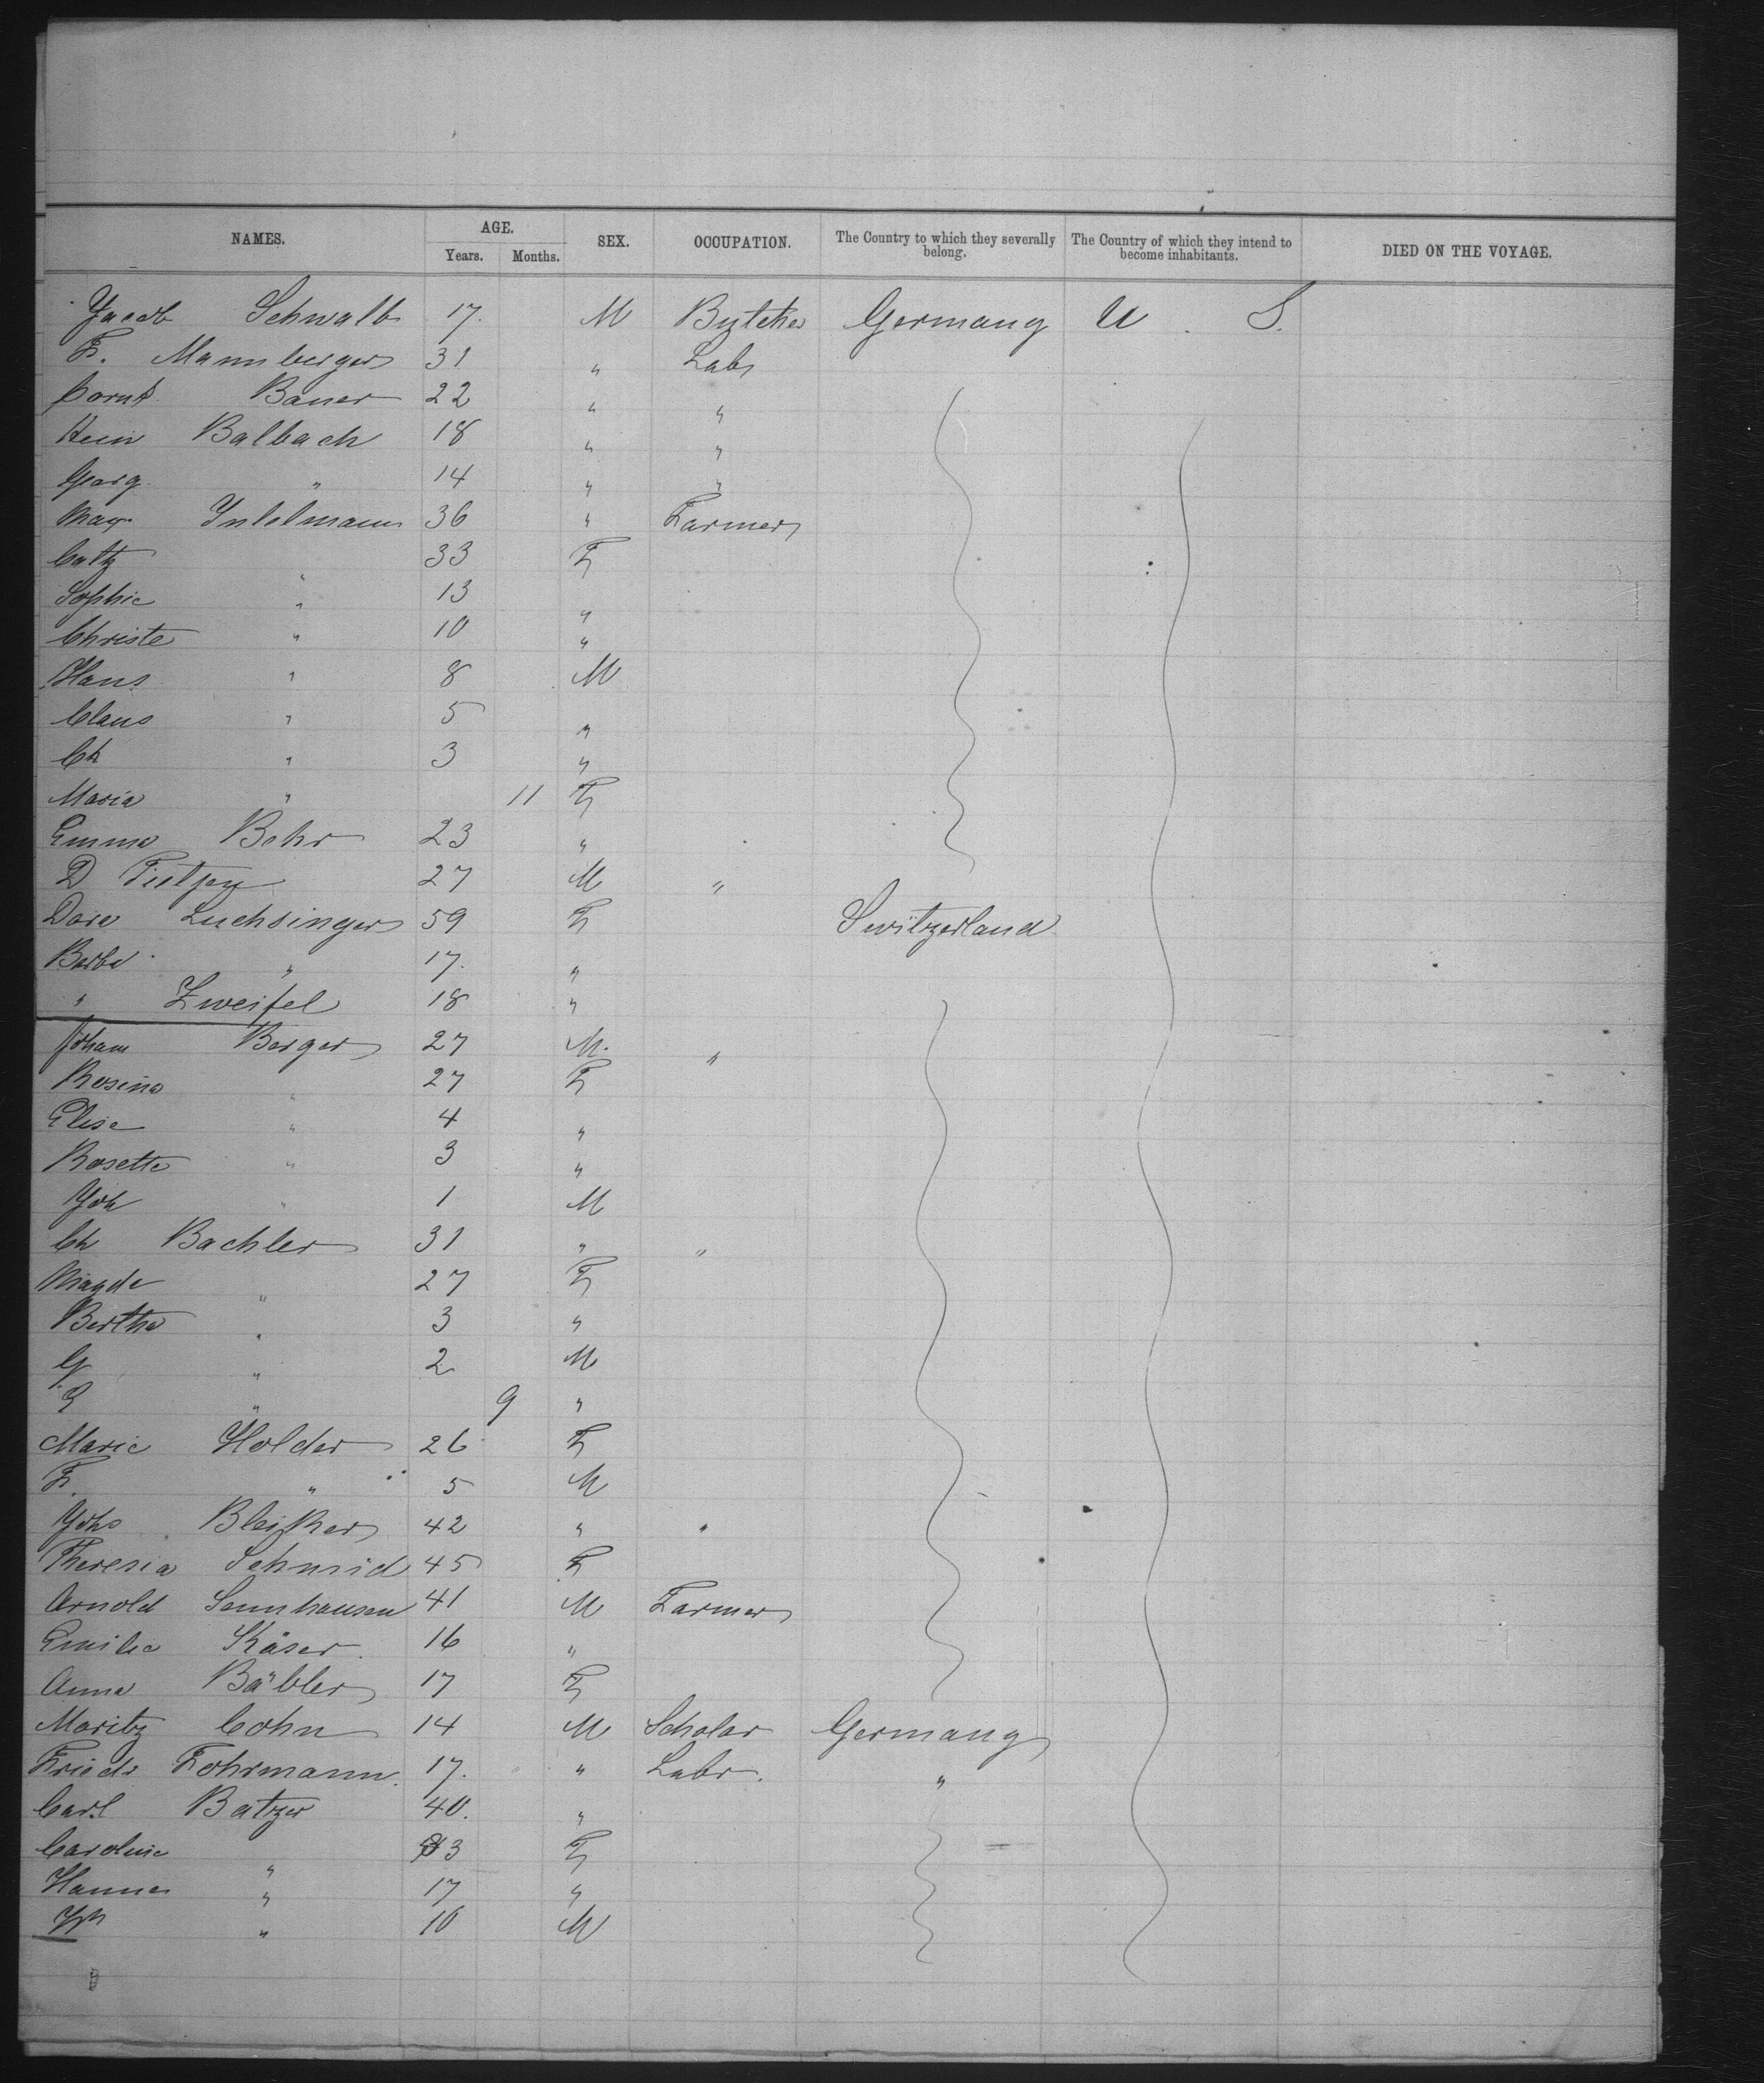 NAMES. AGE. SEX. OCCUPATION. The Country to which they severally belong. The Country of which they intend to become inhabitants. DIED ON THE VOYAGE.
Years. Months.
Jacob Schwalb 17. M Butcher Germany U. S.
F. Mannberger 31 " Labr
Bauer 22 " "
Hein Balbach 18 " "
Georg " 14 " "
36 " Farmer
Cath " 33 F
Sophie " 13 "
Christe " 10 "
Hans " 8 M
Claus " 5 "
Ch " 3 "
Maria " 11 F
Emma Behr 23 "
D 27 M "
Dora Luchsinger 59 F Switzerland
Barba " 17. "
" Zweifel 18 "
Johann Berger 27 M. "
Rosina " 27 F
Elise " 4 "
Rosette " 3 "
Joh " 1 M
Ch Bachler 31 " "
Magde " 27 F
Bertha " 3 "
G " 2 M
" 9 "
Marie Holder 26 F
F. " 5 M
Johs Bleiker 42 " "
Theresia Schmid 45 F
Arnold Sennhausen 41 M Farmer
Emilie Käser 16 "
Anna Bäbler 17 F
Moritz Cohn 14 M Scholar Germany
Friedr Fohrmann. 17. " Labr. "
Carl Batzer 40. "
Caroline " 33 F
Hanna " 17 "
" 10 M